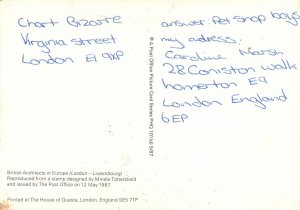 Chart Bizarre
Virginia street
London E1 9XP
answer: Pet shop boys
my adress:
Caroline Marsh
28 Coniston walk
homerton E9
London England
6EP
® A Post Office Picture Card Series PHQ 101(d) 5/87
British Architects in Europe (Lasdun – Luxembourg)
Reproduced from a stamp designed by Minale Tattersfield
and issued by The Post Office on 12 May 1987
Printed at The House of Questa, London, England SE5 7TP